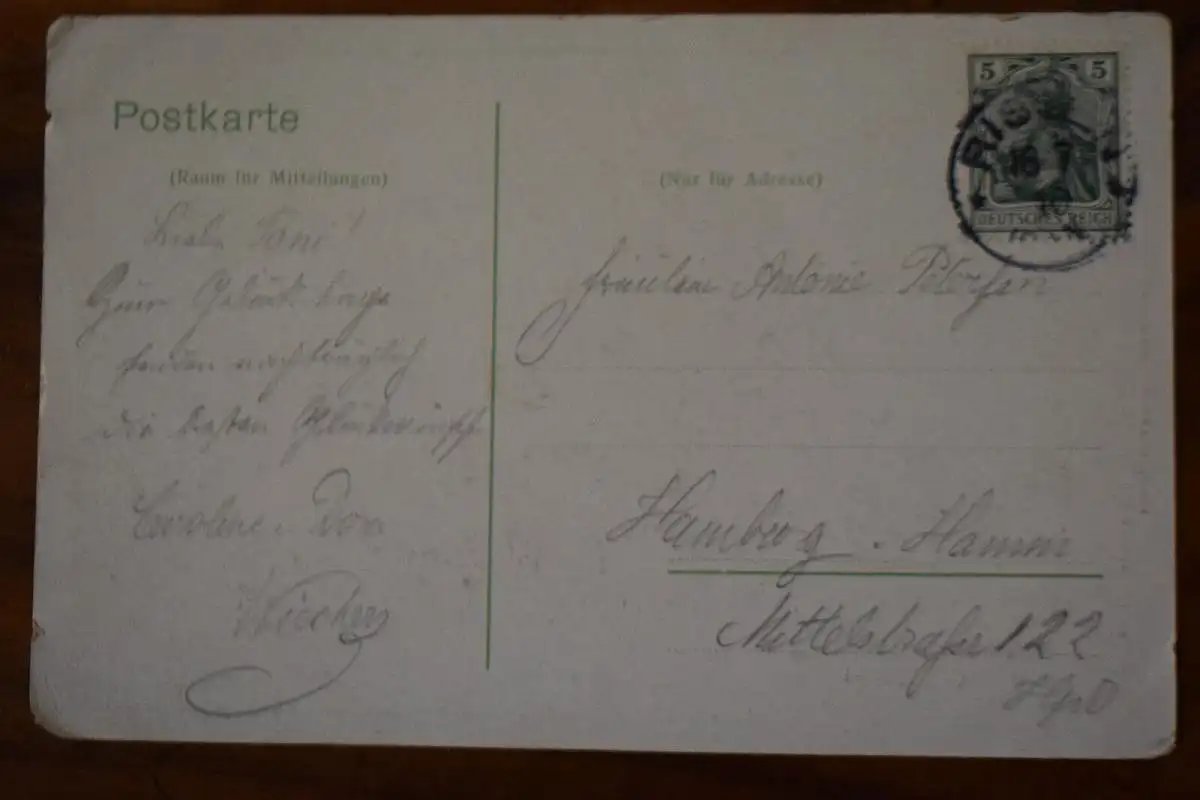 Postkarte
(Raum für Mitteilungen)
Liebe Toni!
Zum Geburtstage
senden nachträglich
die besten Glückwünsche
Caroline u. Dora
(Nur für Adresse)
5 5
RIS
16 7
10
DEUTSCHES REICH
Fräulein Antonie Petersen
Hamburg. Hamm
Mittelstraße 122